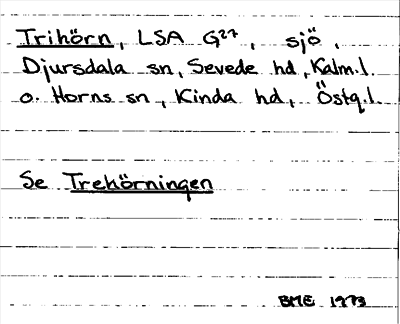 Trihörn, LSA G27, sjö,
Djursdala sn, Sevede hd, Kalm.l.
o. Horns sn, Kinda hd, Östg.l.
Se Trehörningen
BME 1973